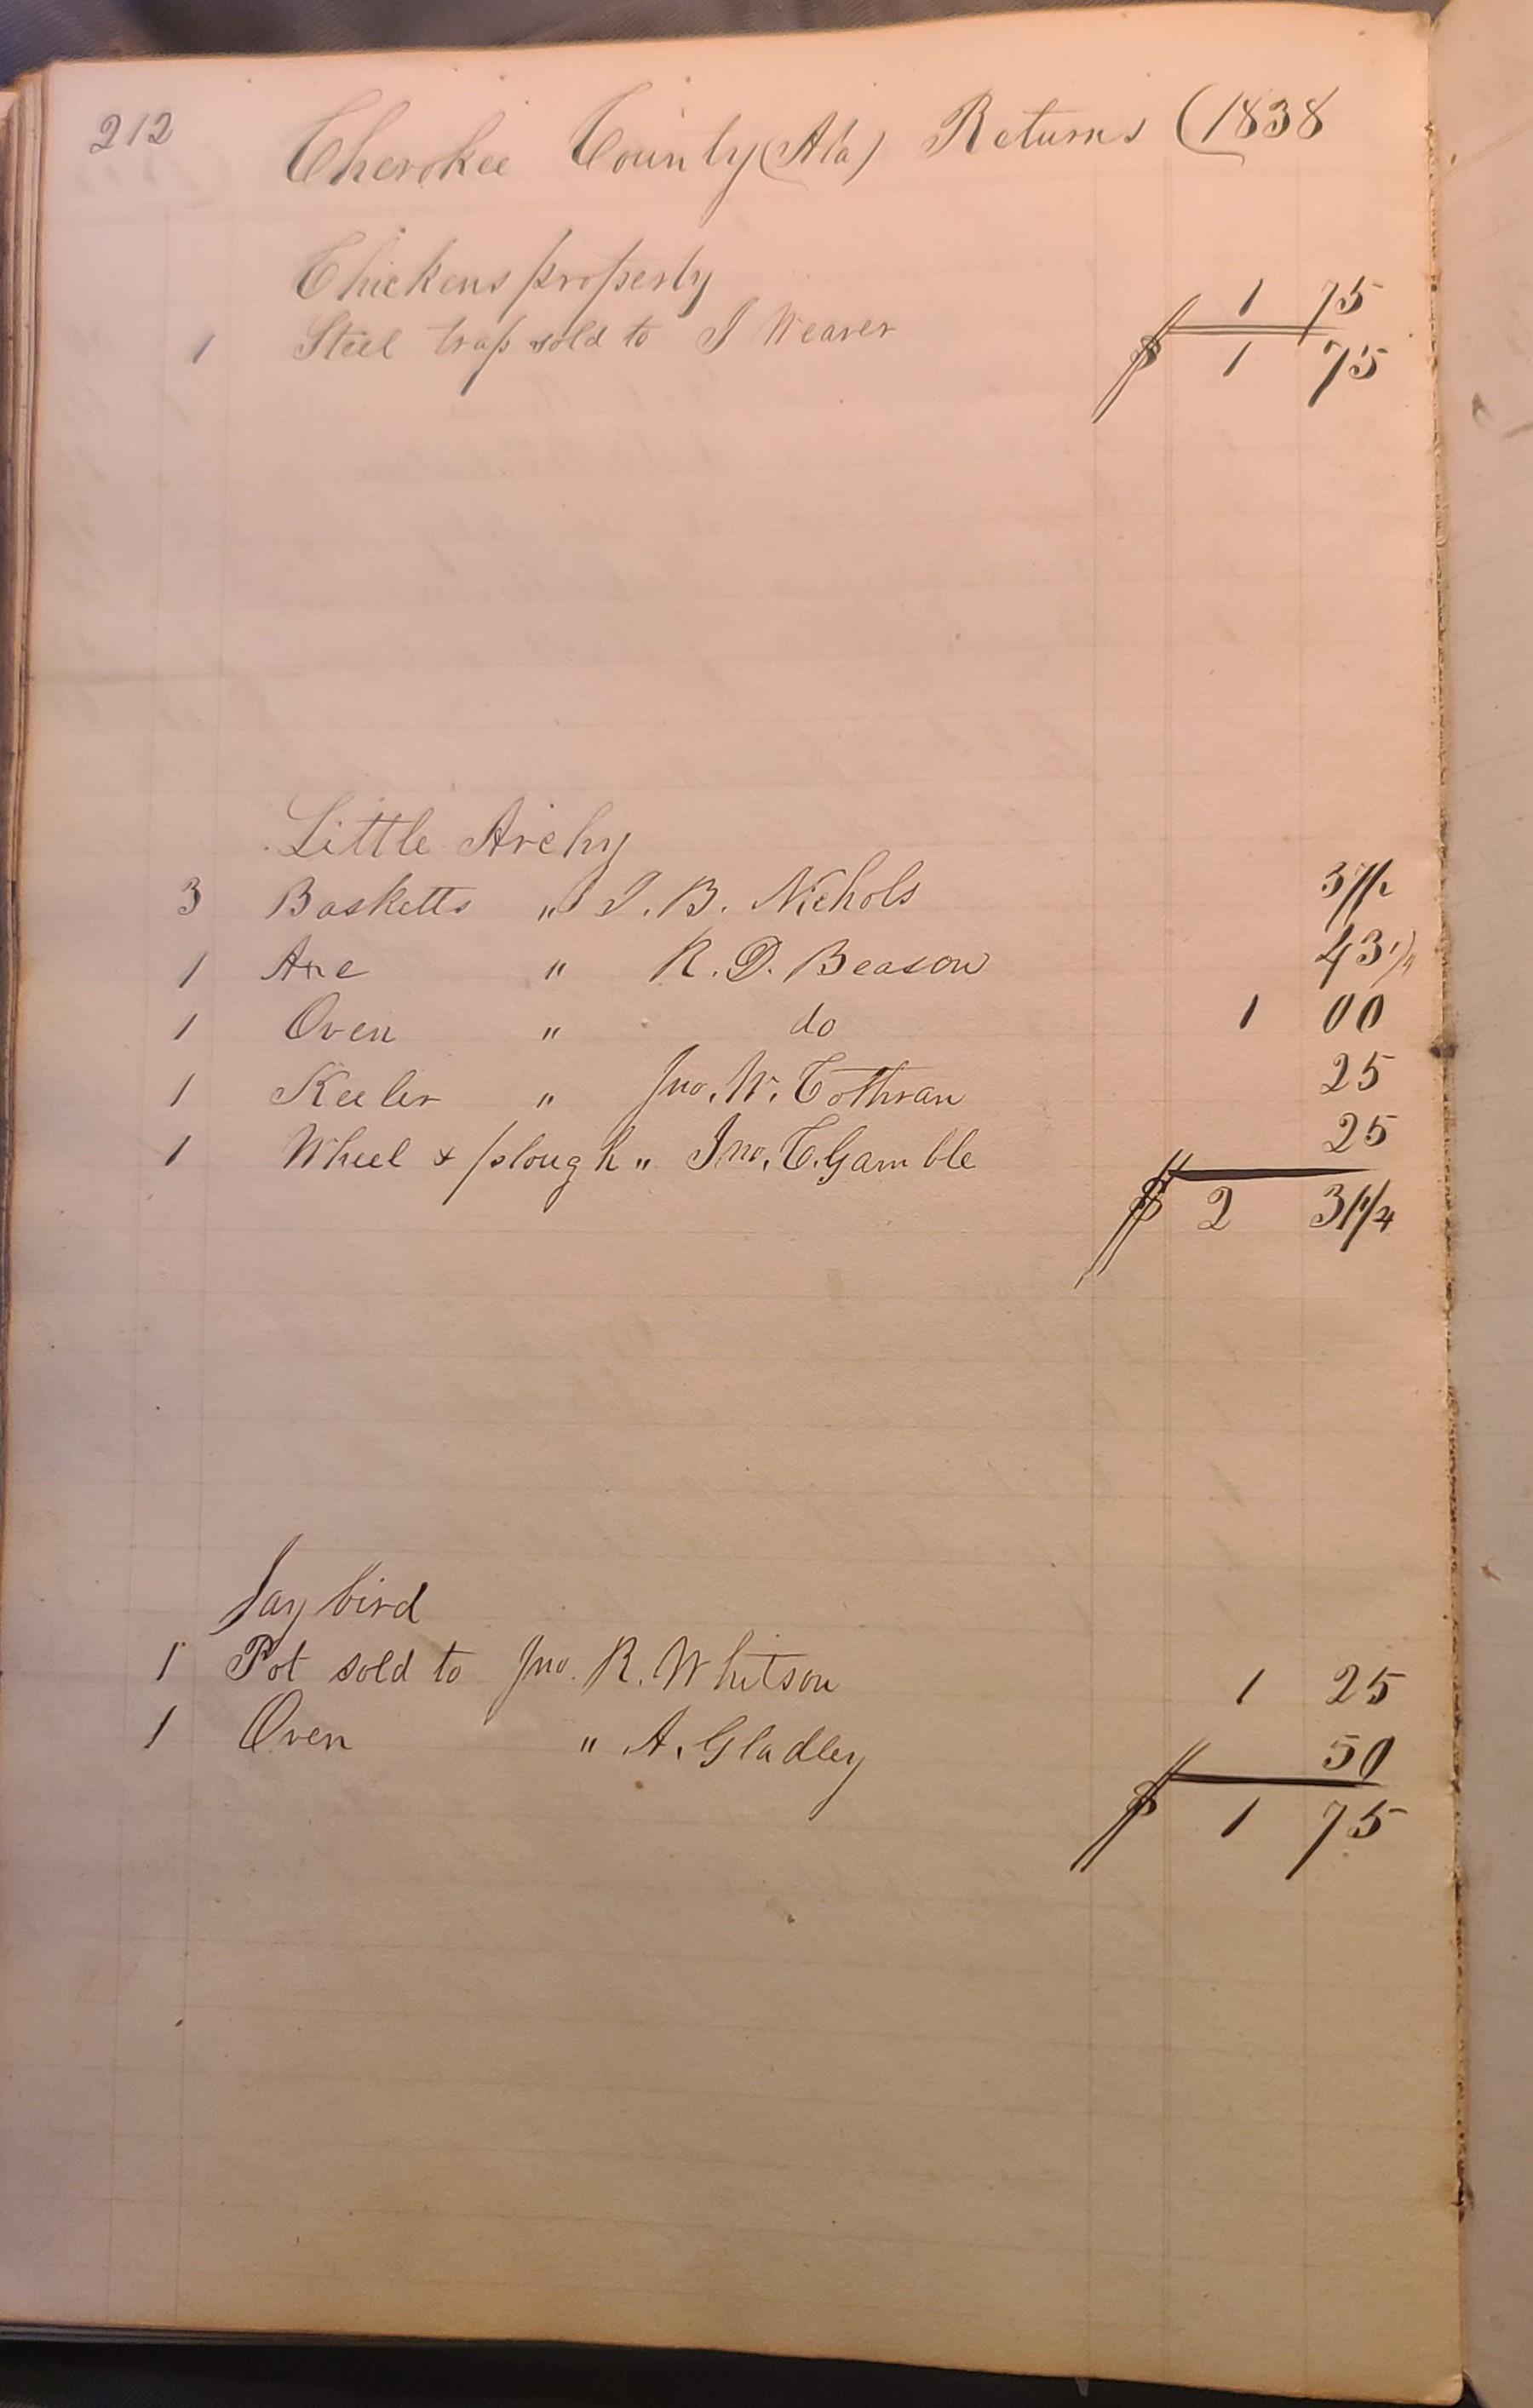 212 Cherokee County (Ala) Returns (1838
Chickens property
1 Steel trap sold to J Weaver 1 75
$ 1 75
Little Archy
3 Basketts " J. B. Nichols 37 1/2
1 Axe " R. D. Beason 43 1/4
1 Oven " do 1 00
1 Keeler " Jno. W. Cothran 25
1 Wheel & plough " Jno. C. Gamble 25
$ 2 31 1/4
Jay bird
1 Pot sold to Jno. R. Whitson 1 25
1 Oven " A. Gladley 50
$ 1 75